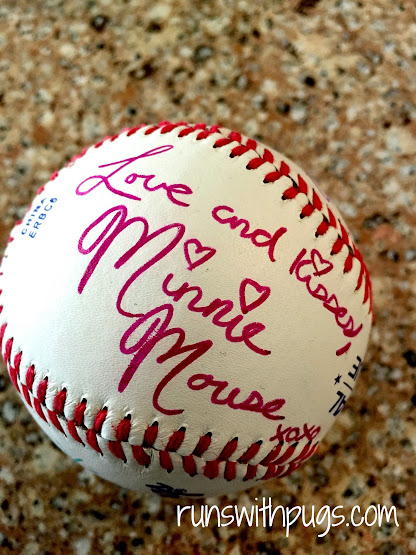 Love and Kisses,
Minnie
Mouse
xoxo
CHINA
ERBC6
runswithpugs.com